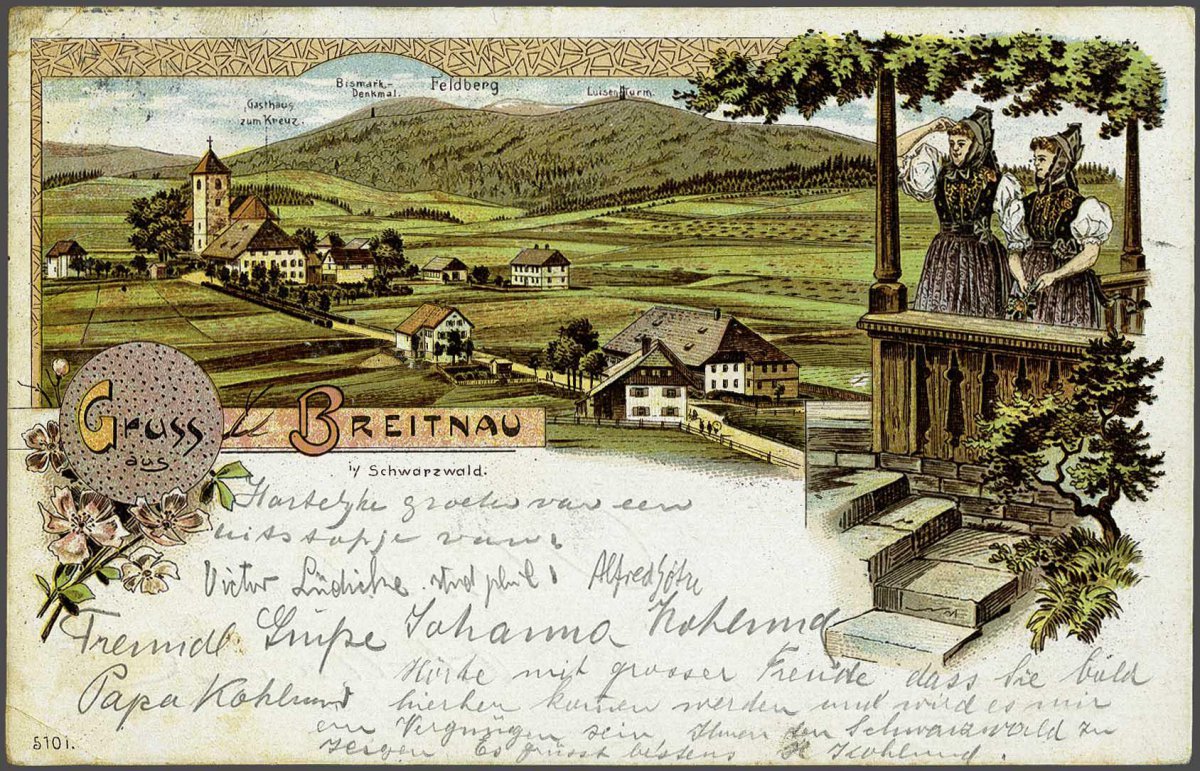 Bismark-
Denkmal.
Feldberg
Luisen Turm.
Gasthaus
zum Kreuz.
Gruss
aus
BREITNAU
i/ SCHWARZWALD.
Hartelyke groeten van een
uitstapje van
Victor Lüdicke stud phil Alfred Götze
Freundl. Grüße Johanna Kohlund
Papa Kohlund
Hörte mit grosser Freude dass Sie bald
hierher kommen werden und wird es mir
ein Vergnügen sein Ihnen den Schwarzwald zu
zeigen Es grüsst bestens H Kohlund.
5101.